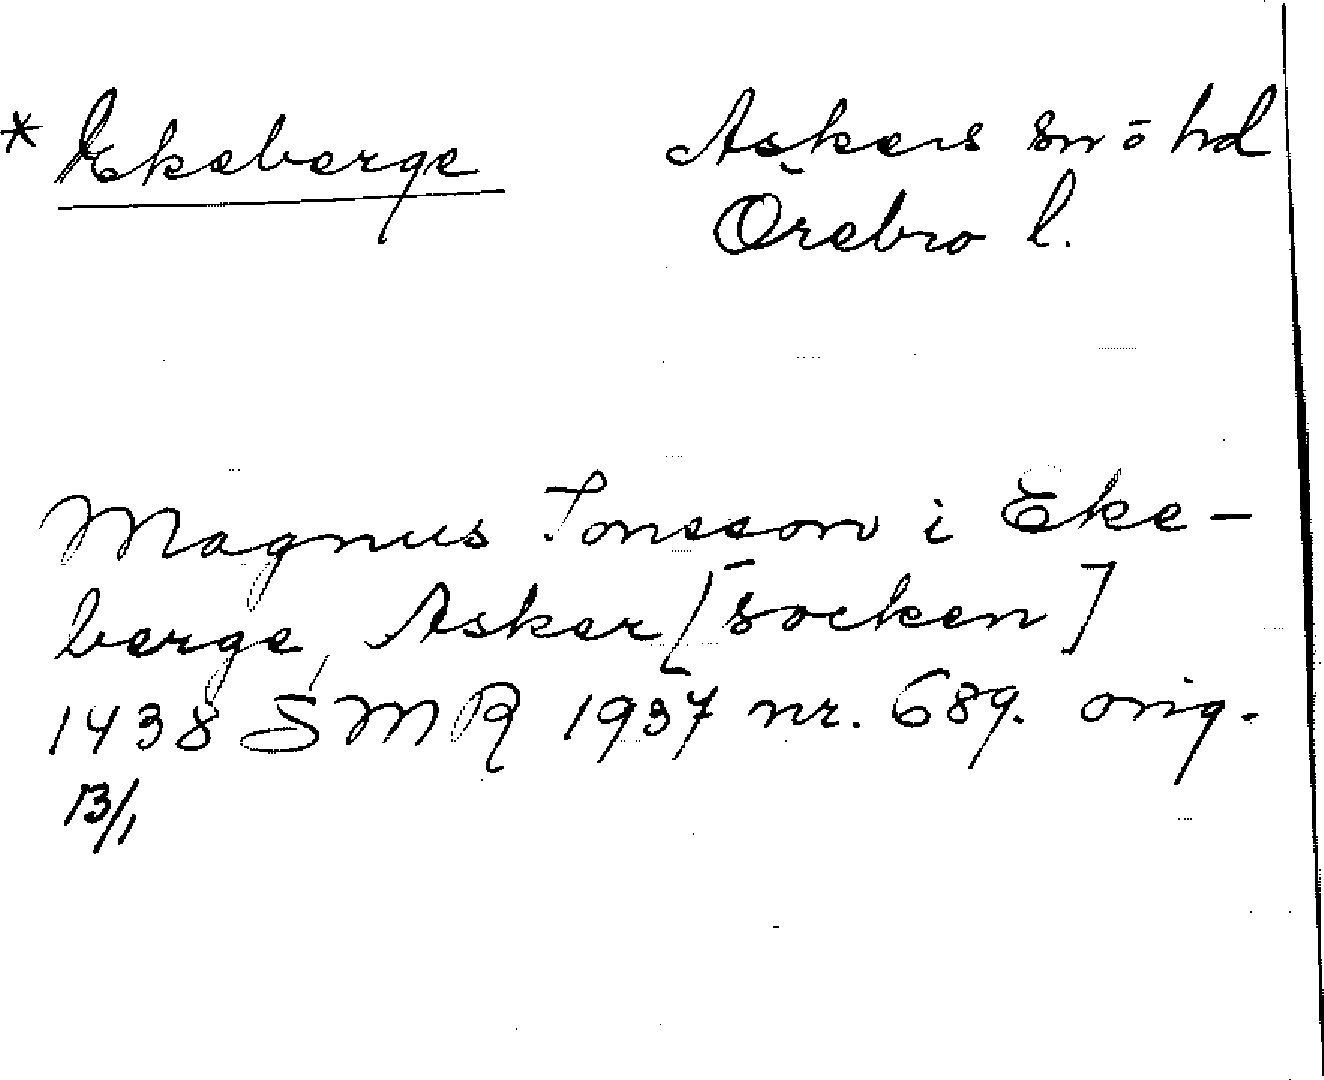 * Ekeberge
Askers sn o hd
Örebro l.
Magnus Jonsson i Eke-
berge, Asker [socken]
1438 SMR 1937 nr. 689. orig.
13/1